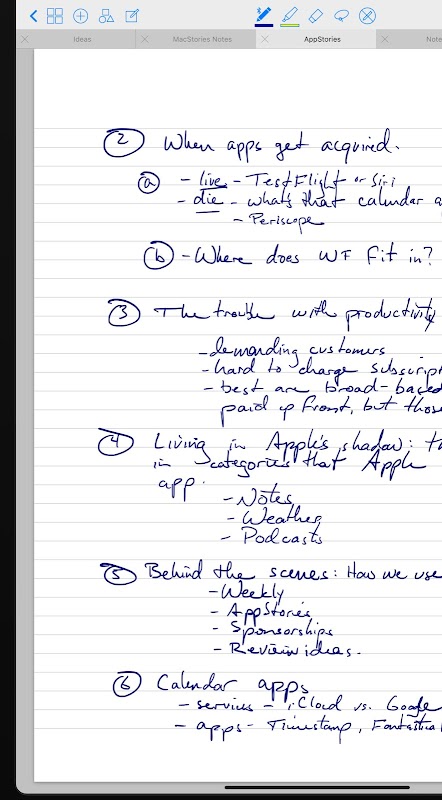 Ideas
MacStories Notes
AppStories
Note
2 When apps get acquired.
a - live - TestFlight or Siri
- die - whats that calendar a
- Periscope
b - Where does WF fit in?
3 The trouble with productivity
- demanding customers
- hard to charge subscript
- best are broad-based
paid up front, but those
4 Living in Apple's shadow: th
in categories that Apple
app.
- Notes
- Weather
- Podcasts
5 Behind the scenes: How we use
- Weekly
- AppStories
- Sponsorships
- Review ideas.
6 Calendar apps
- services - iCloud vs. Google
- apps - Timestamp, Fantastica